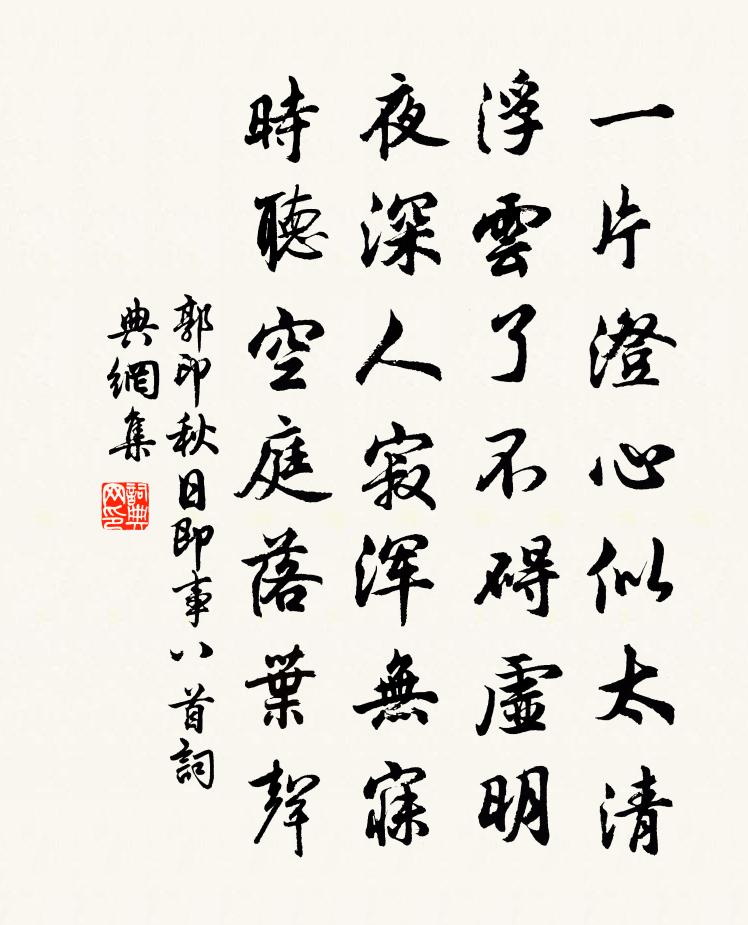 一片澄心似太清
浮雲了不碍虛明
夜深人寂浑無寐
時聽空庭落葉聲
郭印秋日即事八首詞
典網集
詞典网印